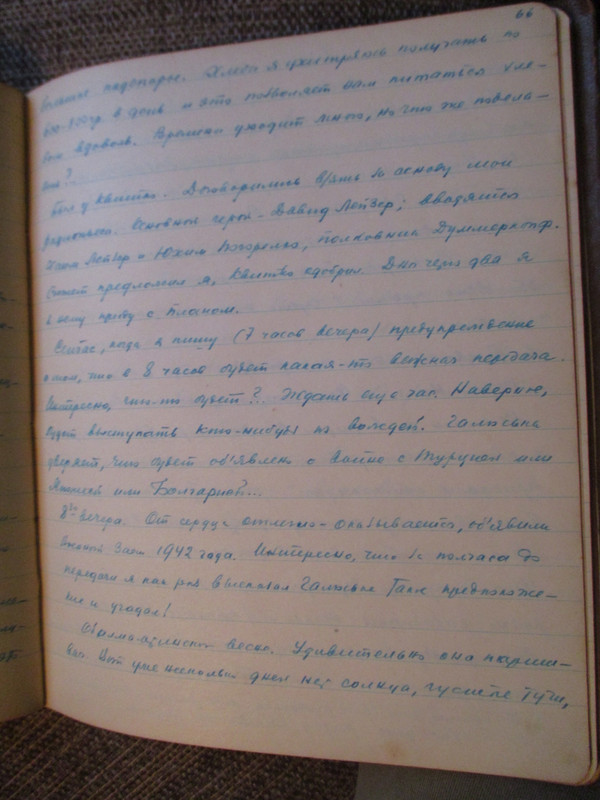 66
большие подспорье. Хлеба я ухитряюсь получать по
600-800гр в день и это позволяет нам питаться хле-
бом вдоволь. Времени уходит много, но что же подела-
ешь?
Был у Квитко. Договорились взять за основу мои
Основной герой - Давид Лейзер; вводятся
Лейзер и Юхим полковник Думмеркопф.
Сюжет предложил я, Квитко одобрил. Дня через два я
к нему приду с планом.
Сейчас, когда я пишу (7 часов вечера) предупреждение
о том, что в 8 часов будет какая-то важная передача.
Интересно, что-то будет? Ждать еще час. Наверное,
будет выступать кто-нибудь из вождей. Галюська
уверяет, что будет об'явлено о войне с Турцией или
Японией или Болгарией...
8 30 вечера. От сердца отлегло - оказывается, об'явили
Военный Заем 1942 года. Интересно, что за полчаса до
передачи я как раз высказал Галюське такое предположе-
ние и угадал!
Об алмаатинской весне. Удивительно она
Вот уже несколько дней нет солнца, густые тучи,